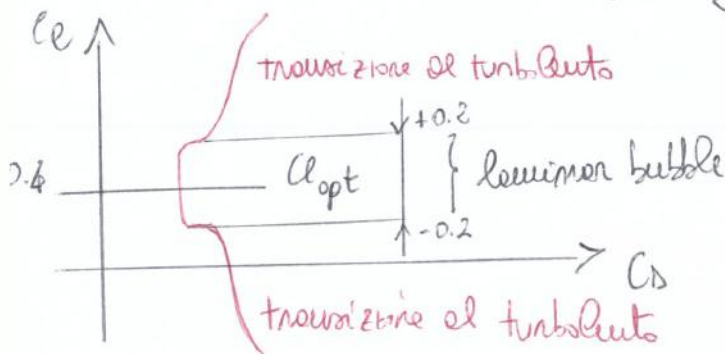 Cl
transizione al turbolento
+0.2
0.4
Cl opt
laminar bubble
-0.2
CD
transizione al turbolento